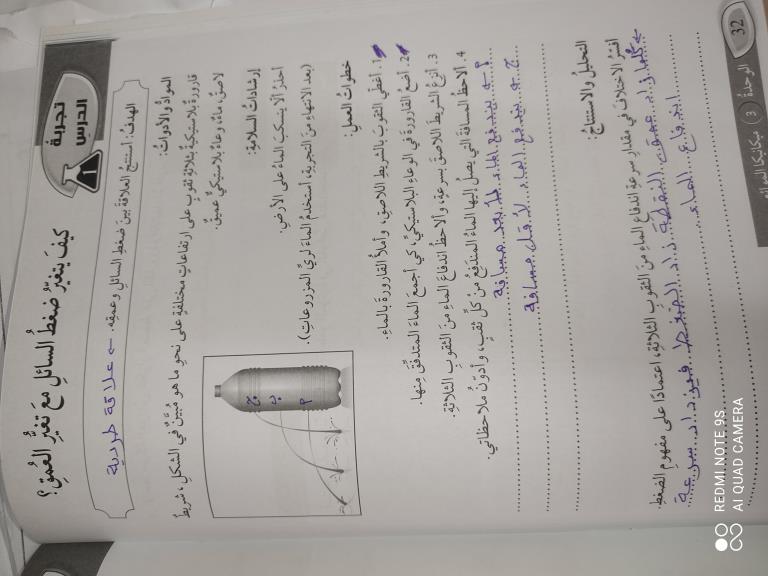 تجربة
الدرس
1
كيفَ يتغيَّرُ ضغطُ السائلِ معَ تغيُّرِ العُمقِ؟
الهدفُ: أستنتجُ العلاقةَ بينَ ضغطِ السائلِ وعمقِه. ← علاقة طردية
الموادُّ والأدواتُ:
قارورةٌ بلاستيكيةٌ بثلاثةِ ثقوبٍ على ارتفاعاتٍ مختلفةٍ على نحوِ ما هو مُبيَّنٌ في الشكلِ، شريطٌ
لاصقٌ، ماءٌ، وعاءٌ بلاستيكيٌّ عميقٌ.
إرشاداتُ السلامةِ:
أحذرُ ألّا ينسكبَ الماءُ على الأرضِ.
(بعدَ الانتهاءِ منَ التجربةِ، أستخدمُ الماءَ لريِّ المزروعاتِ).
ج
ب
م
خطواتُ العملِ:
1. أغطي الثقوبَ بالشريطِ اللاصقِ، وأملأُ القارورةَ بالماءِ.
2. أضعُ القارورةَ في الوعاءِ البلاستيكيِّ، كي أجمعَ الماءَ المتدفّقَ مِنها.
3. أنزعُ الشريطَ اللاصقَ بسرعةٍ، وألاحظُ اندفاعَ الماءِ منَ الثقوبِ الثلاثةِ.
4. ألاحظُ المسافةَ التي يصلُ إليها الماءُ المندفعُ منْ كلِّ ثقبٍ، وأدوّنُ ملاحظاتي.
م ← يندفع الماء لأبعد مسافة
ج ← يندفع الماء لأقل مسافة
التحليلُ والاستنتاجُ:
أُفسّرُ الاختلافَ في مقدارِ سرعةِ اندفاعِ الماءِ منَ الثقوبِ الثلاثةِ، اعتمادًا على مفهومِ الضغطِ.
← كلما زاد عمق النقطة زاد الضغط فيزداد سرعة
اندفاع الماء
32
الوحدةُ 3 ميكانيكا الموائع
REDMI NOTE 9S
AI QUAD CAMERA